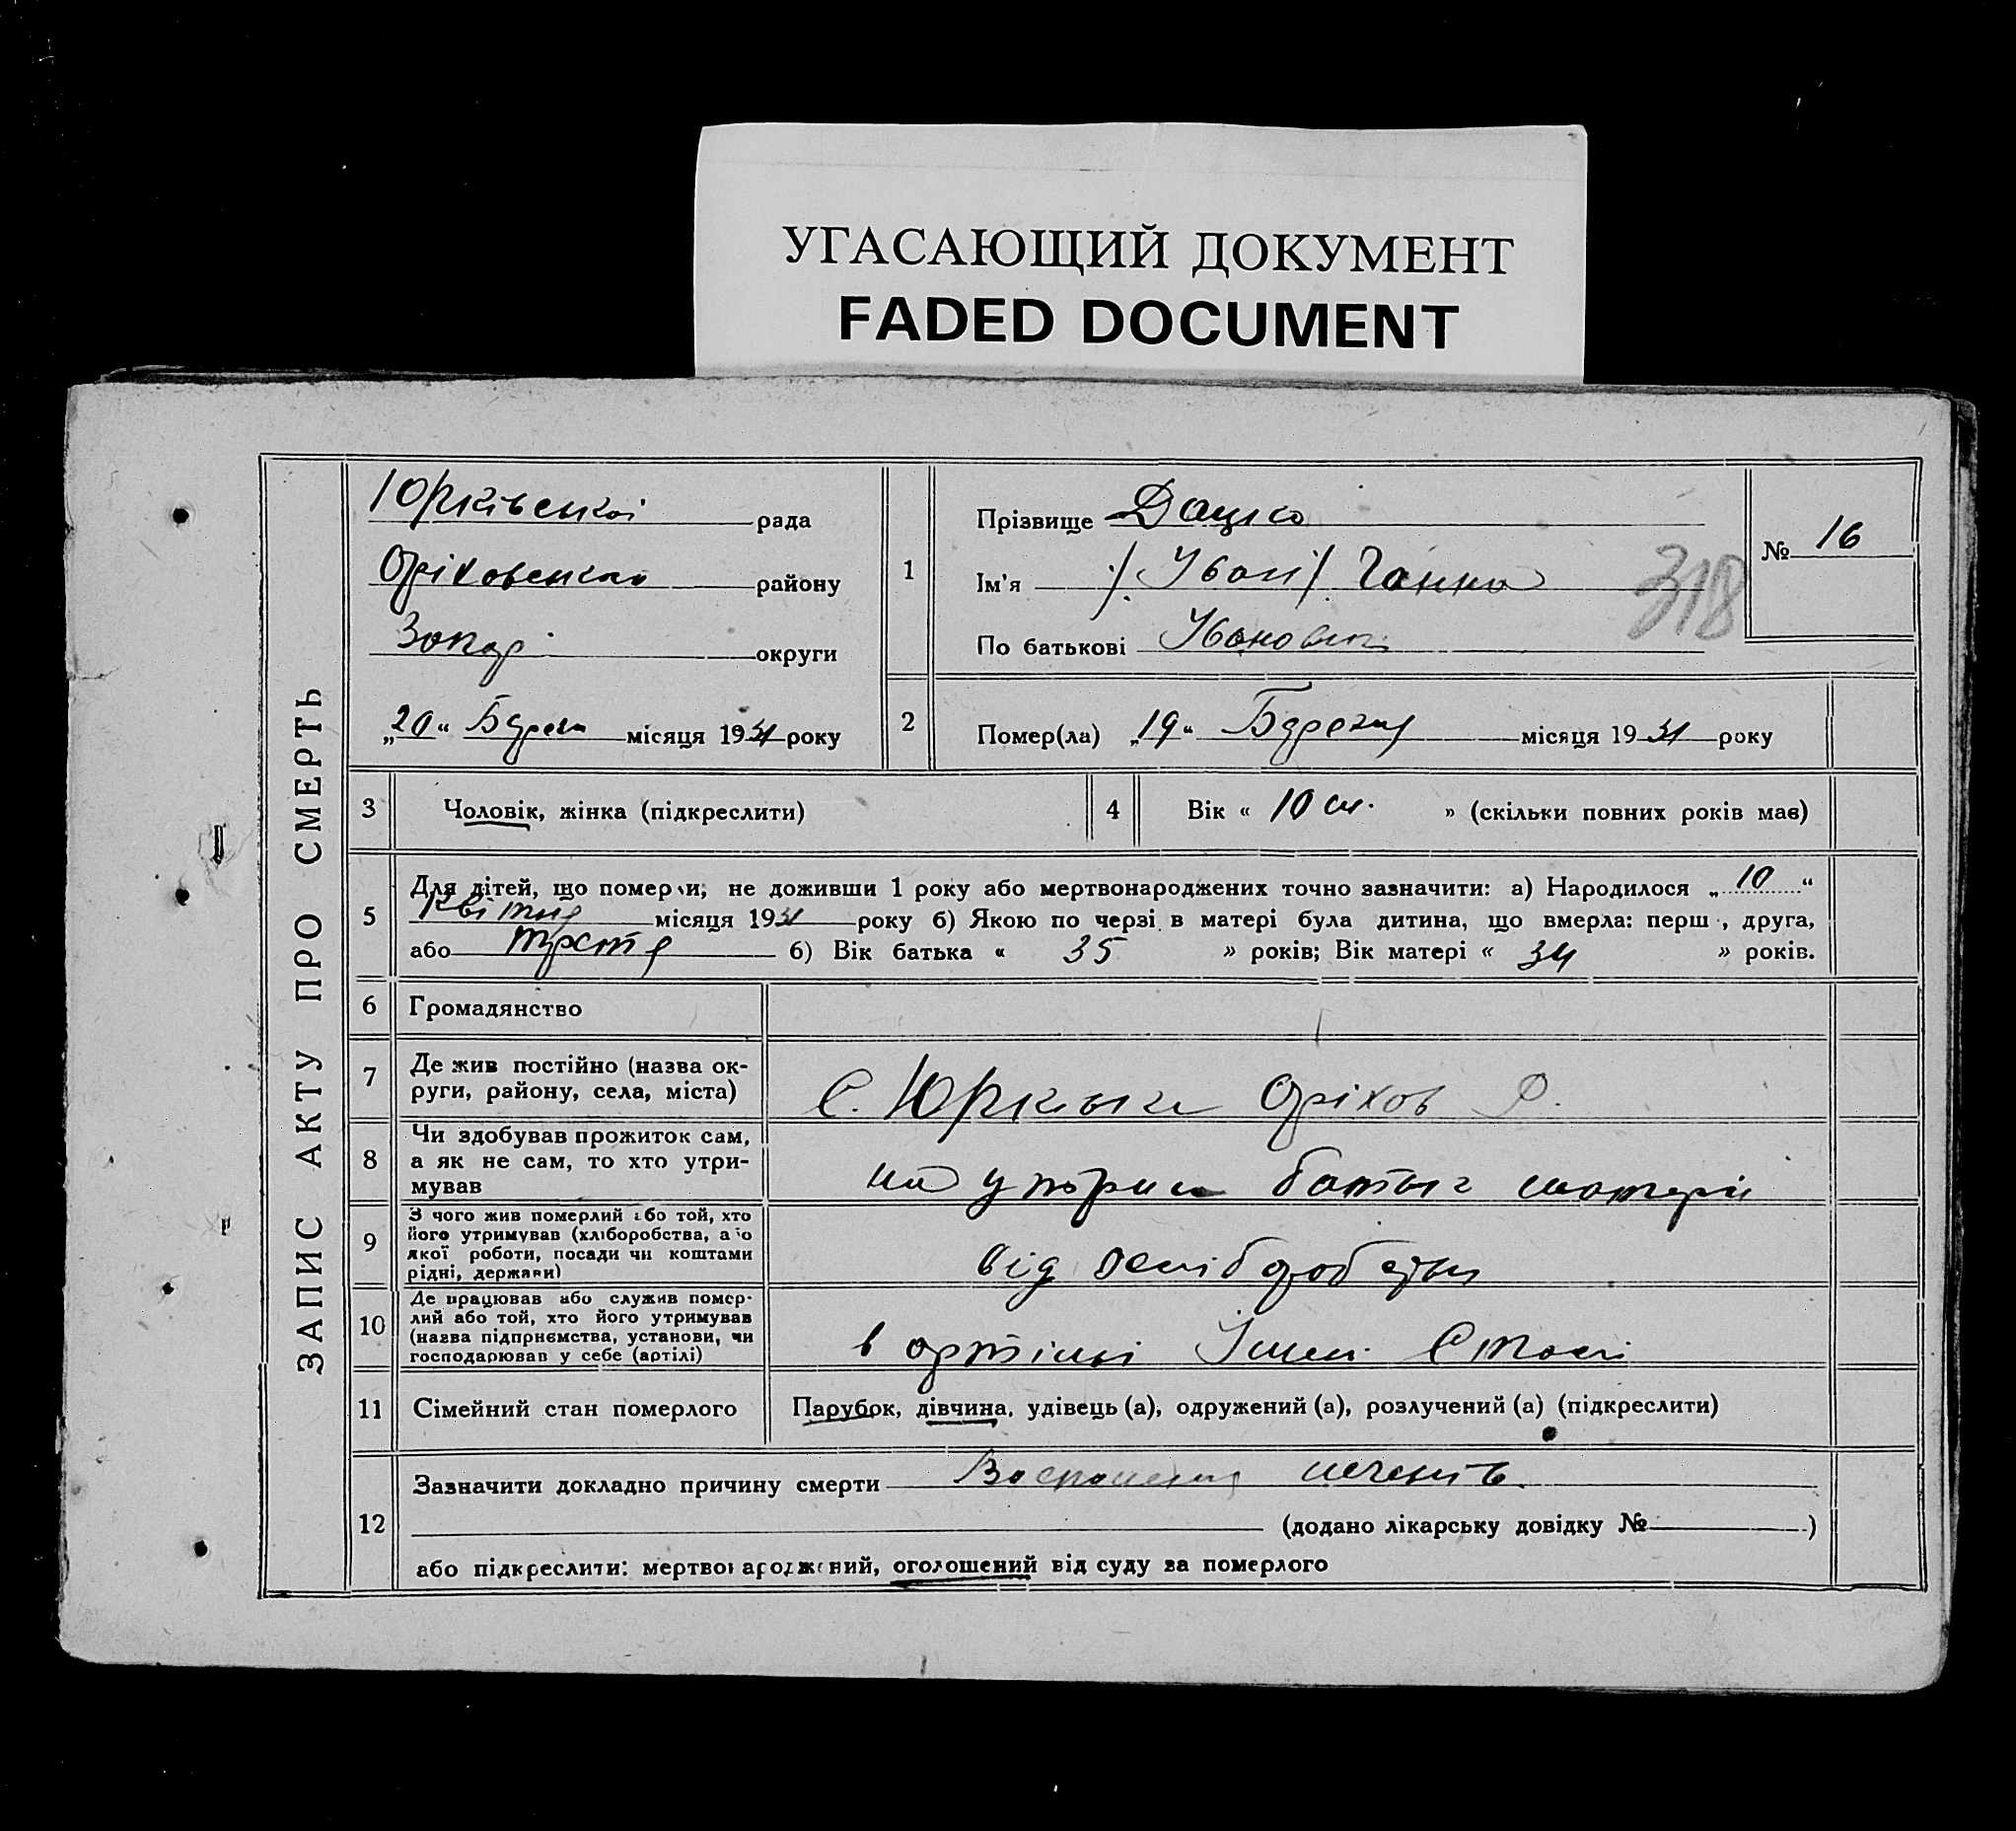 УГАСАЮЩИЙ ДОКУМЕНТ
FADED DOCUMENT
ЗАПИС АКТУ ПРО СМЕРТЬ
Юрківської рада
Оріховського району
Запор округи
„20“ Березня місяця 1931 року
1
Прізвище Дацко
Ім'я /Іван/ Ганна
По батькові
318
№ 16
2
Помер(ла) „19“ Березня місяця 1931 року
3 Чоловік, жінка (підкреслити)
4 Вік « 10 м. » (скільки повних років має)
5
Для дітей, що померли, не доживши 1 року або мертвонароджених точно зазначити: а) Народилося „10“
Квітня місяця 193 року б) Якою по черзі в матері була дитина, що вмерла: перш, друга,
або третя б) Вік батька « 35 » років; Вік матері « 34 » років.
6 Громадянство
7 Де жив постійно (назва ок-
руги, району, села, міста)
С. Юрківка Оріхов Р.
8 Чи здобував прожиток сам,
а як не сам, то хто утри-
мував
на утрим батька матері
9 З чого жив померлий або той, хто
його утримував (хліборобства, або
якої роботи, посади чи коштами
рідні, держави)
від
10 Де працював або служив помер-
лий або той, хто його утримував
(назва підприємства, установи, чи
господарював у себе (артілі)
в артілі Імен.
11 Сімейний стан померлого
Парубок, дівчина, удівець (а), одружений (а), розлучений (а) (підкреслити)
12
Зазначити докладно причину смерти
(додано лікарську довідку № )
або підкреслити: мертвонароджений, оголошений від суду за померлого